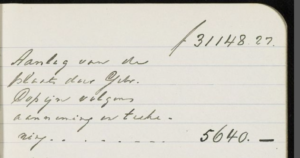 ƒ 31148.27.
Aanleg van de
plaats des Gebr.
volgens
aanneming en teeke-
ning . . . . . . . . 5640. —